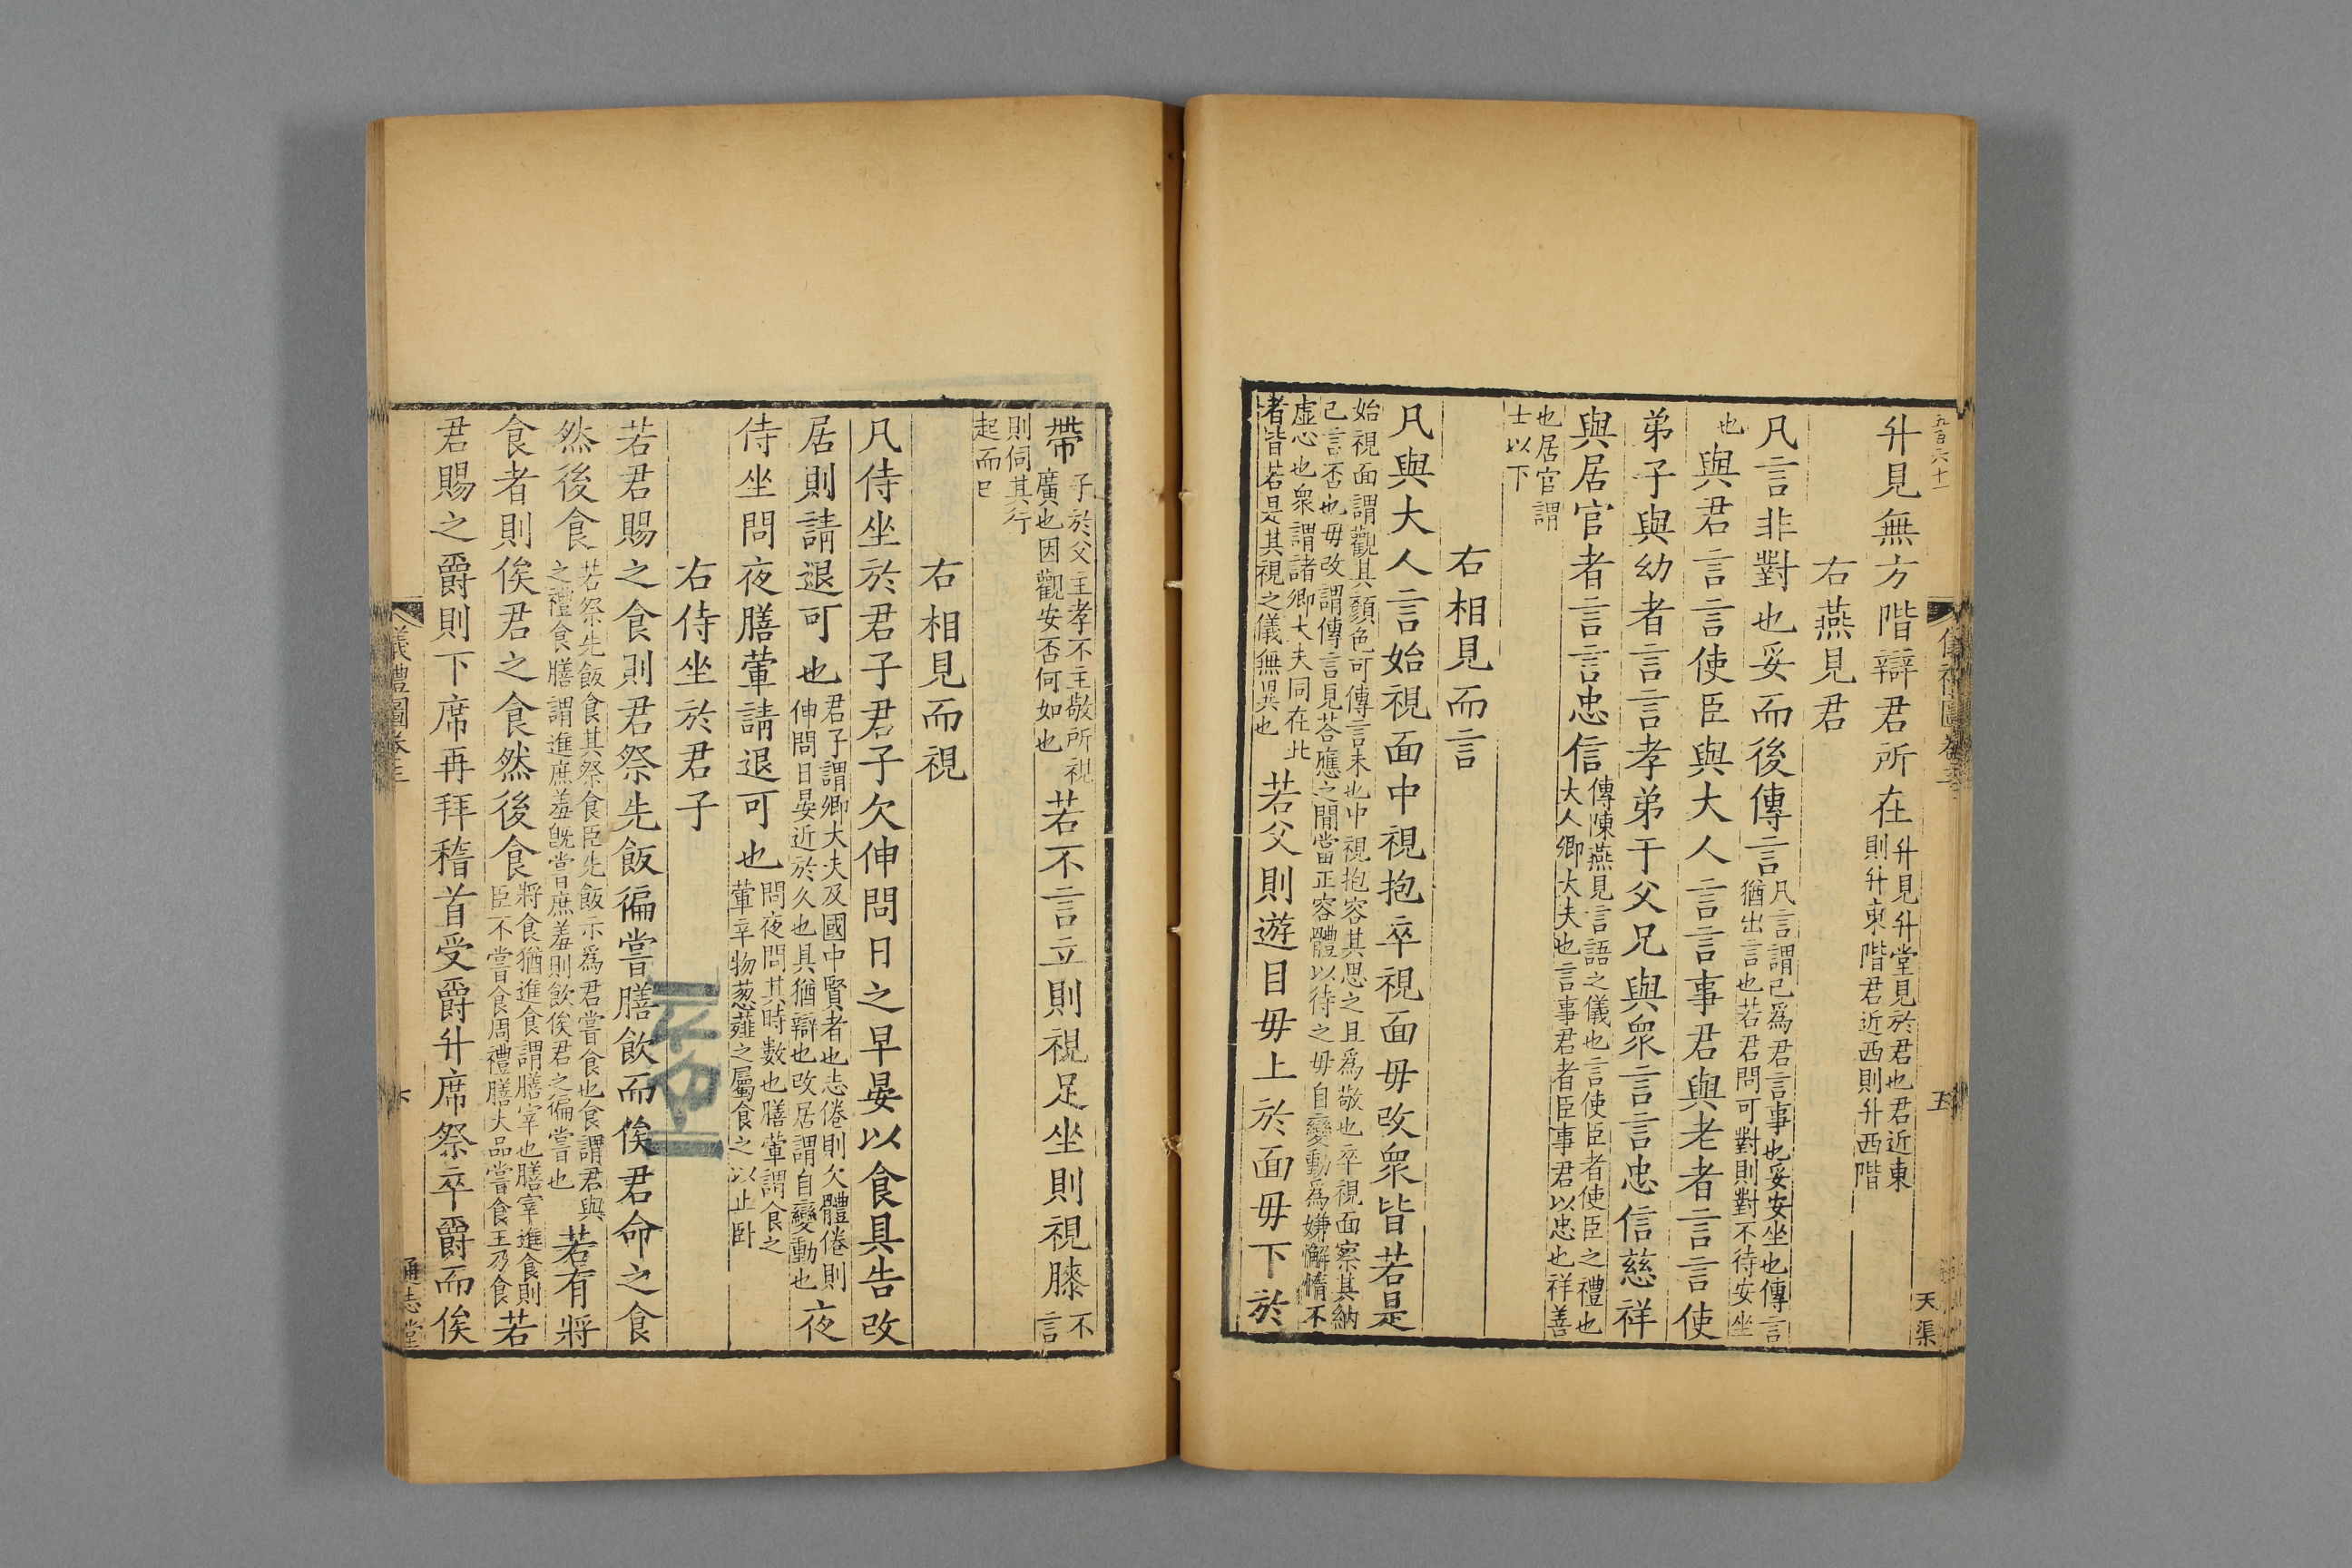 五百六十一
升見無方階辯君所在升見升堂見於君也君近東則升東階君近西則升西階
右燕見君
凡言非對也妥而後傳言凡言謂己爲君言事也妥安坐也傳言猶出言也若君問可對則對不待安坐
也與君言言使臣與大人言言事君與老者言言使
弟子與幼者言言孝弟于父兄與衆言言忠信慈祥
與居官者言言忠信傳陳燕見言語之儀也言使臣者使臣之禮也大人卿大夫也言事君者臣事君以忠也祥善
也居官謂士以下
右相見而言
凡與大人言始視面中視抱卒視面毋改衆皆若是
始視面謂觀其顏色可傳言未也中視抱容其思之且爲敬也卒視面察其納己言否也毋改謂傳言見荅應之閒當正容體以待之毋自變動爲嫌懈惰不
虛心也衆謂諸卿大夫同在此者皆若是其視之儀無異也若父則遊目毋上於面毋下於
五
天渠
帶子於父主孝不主敬所視廣也因觀安否何如也若不言立則視足坐則視膝不言
則伺其行起而已
右相見而視
凡侍坐於君子君子欠伸問日之早晏以食具告改
居則請退可也君子謂卿大夫及國中賢者也志倦則欠體倦則伸問日晏近於久也具猶辯也改居謂自變動也夜
侍坐問夜膳葷請退可也問夜問其時數也膳葷謂食之葷辛物葱薤之屬食之以止卧
右侍坐於君子
若君賜之食則君祭先飯徧嘗膳飲而俟君命之食
然後食若祭先飯食其祭食臣先飯示爲君嘗食也食謂君與之禮食膳謂進庶羞旣嘗庶羞則飲俟君之徧嘗也若有將
食者則俟君之食然後食將食猶進食謂膳宰也膳宰進食則臣不嘗食周禮膳夫品嘗食王乃食若
君賜之爵則下席再拜稽首受爵升席祭卒爵而俟
儀禮圖卷三
六
通志堂